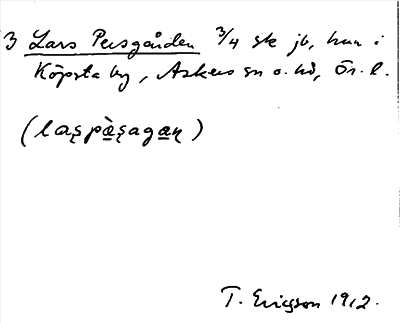 3 Lars Persgården 3/4 sk jb, hm i
Köpsta by, Askers sn o. hd, Ör. l.
(laşpàşagaṇ)
T. Ericsson 1912.